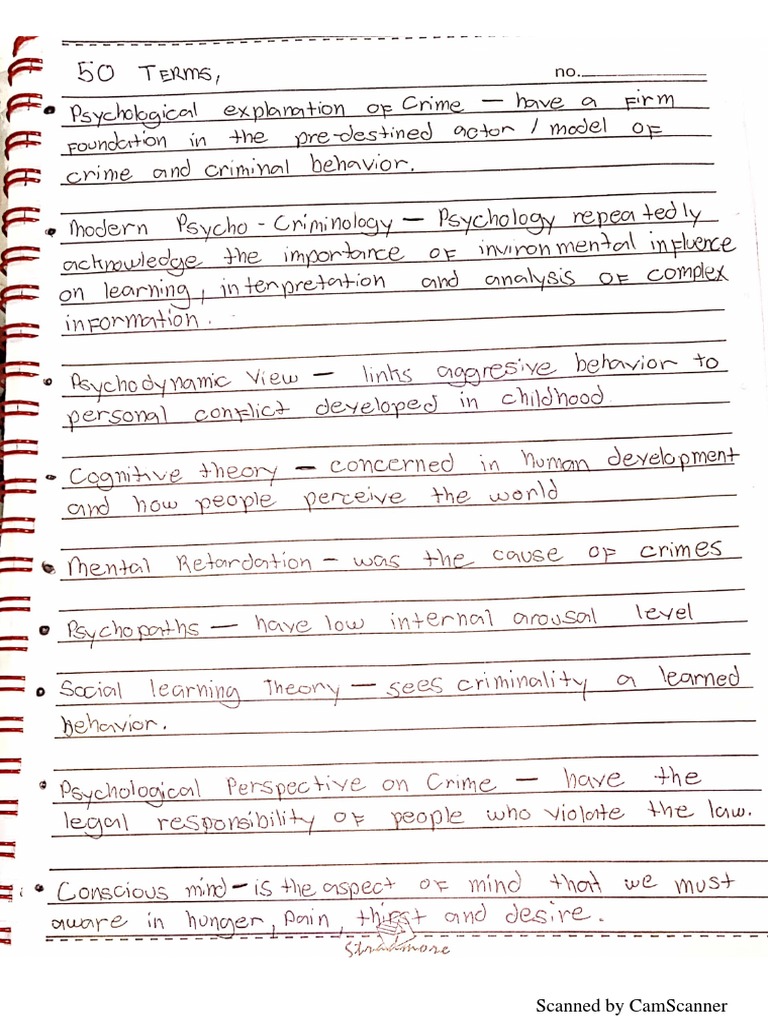 50 TERMS,
no.
• Psychological explanation of Crime – have a firm
foundation in the pre-destined actor / model of
crime and criminal behavior.
• Modern Psycho - Criminology – Psychology repeatedly
acknowledge the importance of invironmental influence
on learning, interpretation and analysis of complex
information.
• Psychodynamic View – links aggresive behavior to
personal conflict developed in childhood.
• Cognitive theory – concerned in human development
and how people perceive the world
• Mental Retardation – was the cause of crimes
• Psychopaths – have low internal arousal level
• Social learning Theory – sees criminality a learned
behavior.
• Psychological Perspective on Crime – have the
legal responsibility of people who violate the law.
• Conscious mind – is the aspect of mind that we must
aware in hunger, pain, thirst and desire.
Strathmore
Scanned by CamScanner